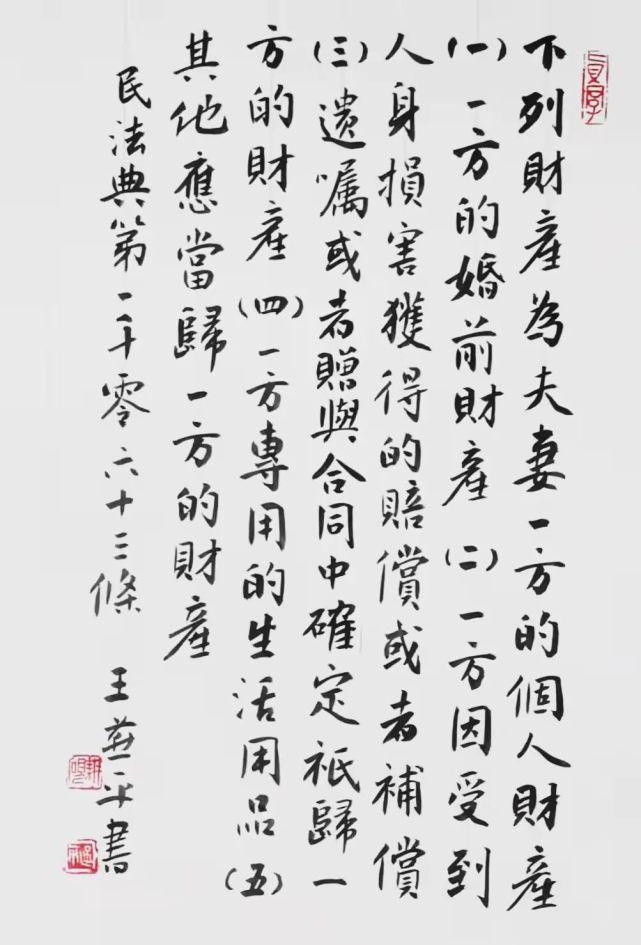 下列財產為夫妻一方的個人財產
(一)一方的婚前財產(二)一方因受到
人身損害獲得的賠償或者補償
(三)遺囑或者贈與合同中確定祇歸一
方的財產(四)一方專用的生活用品(五)
其他應當歸一方的財產
民法典第一千零六十三條 王燕平書